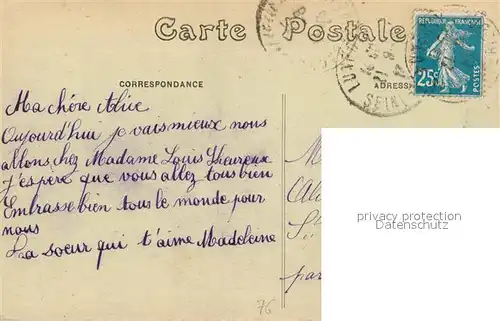 Carte Postale
CORRESPONDANCE
ADRESS
REPUBLIQUE FRANÇAISE
25c
POSTES
Ma chère Alice
Aujourd'hui je vais mieux nous
allons chez Madame Louis Lheureux
J'espère que vous allez tous bien
Embrasse bien tous le monde pour
nous
La soeur qui t'aime Madeleine
M
Al
S
par
privacy protection
Datenschutz
76